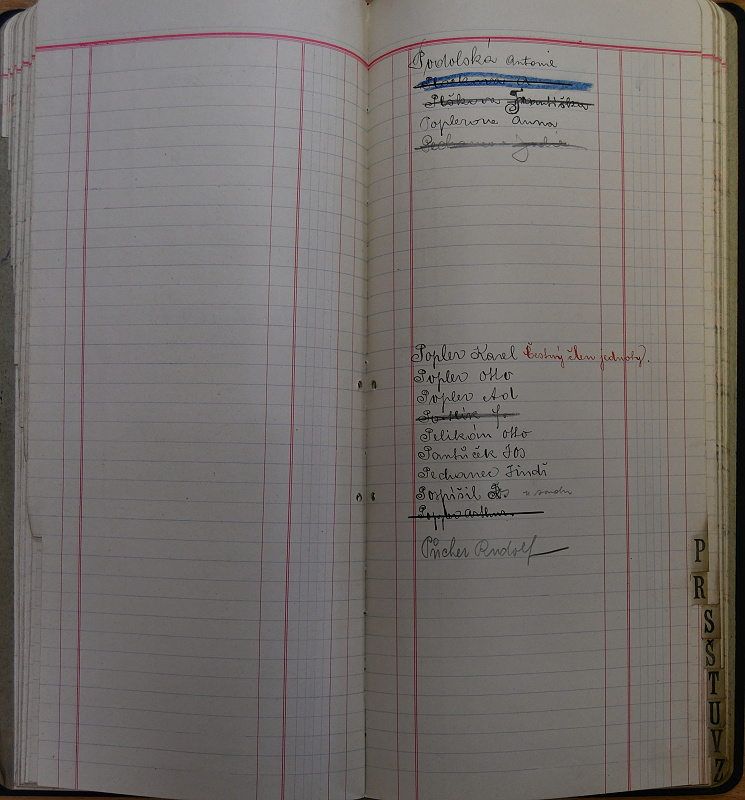 Podolská Antonie
Plškova Františka
Poplerova Anna
Popler Karel Čestný člen jednoty).
Popler Otto
Popler Ad
Pelikán Otto
Pantůček Jos
Pechanec Jindř
Pospíšil
Popper Arthur
Půcher Rudolf
P
R
S
Š
T
U
V
Z